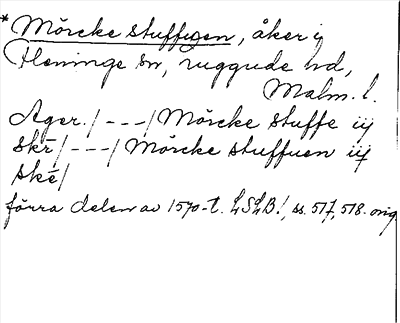 * Mörcke stuffuen, åker i
Fleninge sn, Luggude hd,
Malm. l.
Ager. / - - - / Mörcke stuffe iij
skr / - - - / Mörcke stuffuen iij
ske /
förra delen av 1570-t. LSLB!, ss. 517, 518. orig.